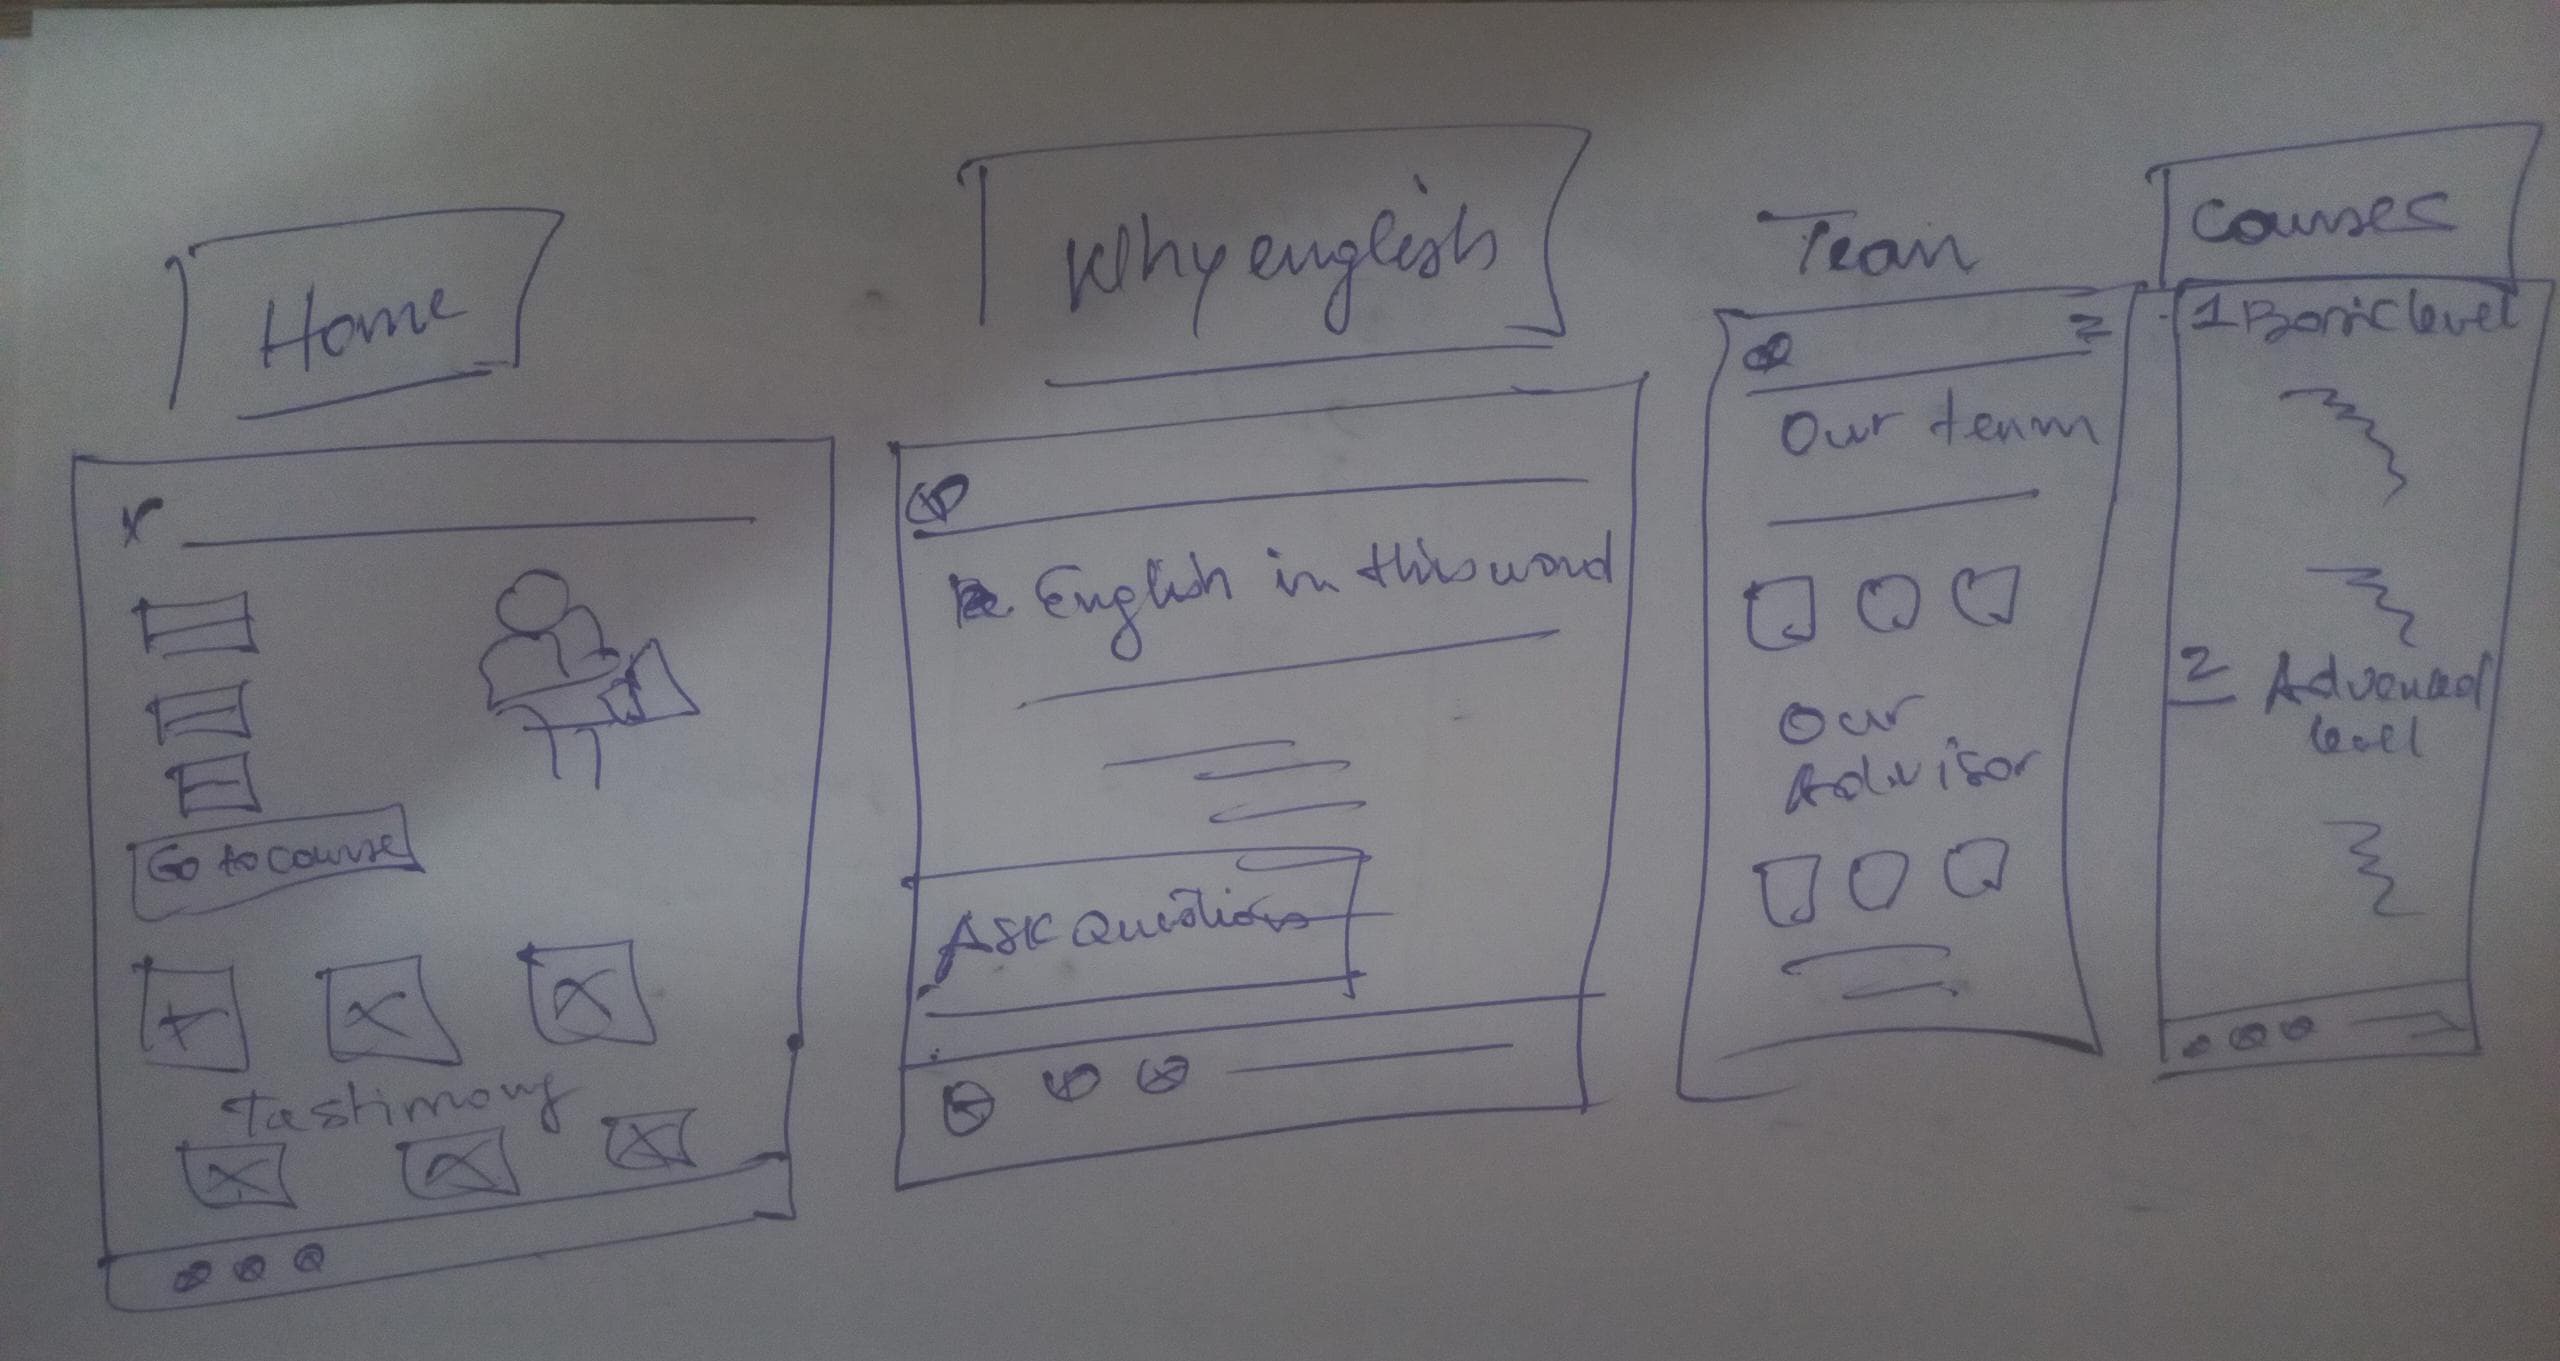 Home
Go to course
Tastimony
Why english
English in this word
ASK Questions
Team
Our team
Our
Advisor
Courses
1 Basic level
2 Advenced
level